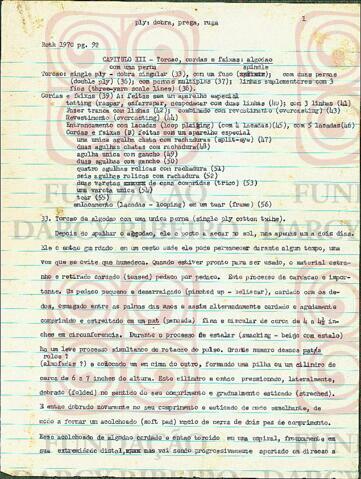 ply: dobra, prega, ruga
1
Roth 1970 pg. 92
CAPITULO III - Torcao, cordas e faixas: algodao
com uma perna spindle
Torcao: single ply - dobra singular (33), com um fuso ( ); com duas pernas
(double ply) (36); com pernas multiplas (37); linhas suplementares com 3
fios (three-yarn scale lines) (38).
Cordas e Faixas (39) A: feitas sem um aparelho especial
tatting (raspar, esfarrapar, despedacar com duas linhas (40); com 3 linhas (41)
fazer tranca com linhas (42) combinado com revestimento (overcasting) (43)
Revestimento (overcasting) (44)
Entrancamento com lacadas (loop plaiting) (com 4 lacadas)(45), com 5 lacadas(46)
Cordas e faixas (B) feitas com um aparelho especial
uma unica agulha chata com rachadura (split-eye) (47)
duas agulhas chatas com rachadura(48)
agulha unica com gancho (49)
duas agulhas com gancho (50)
quatro agulhas rolicas com rachadura (51)
seis agulhas rolicas com rachadura (52)
duas varetas de osso compridas (trico) (53)
uma vareta unica (54)
tear (55)
enlacamento (lacadas - looping) em um tear (frame) (56)
33. Torcao de algodao com uma unica perna (single ply cotton twine).
Depois de apanhar o algodao, ele e posto a secar no sol, nas apenas um a dois dias.
Ele e entao guardado em um cesto onde ele pode permanecer durante algum tempo, uma
vez que se evite que humedeca. Quando estiver pronto para ser usado, o material estra-
nho e retirado cardado (teased) pedaco por pedaco. Este processo de cardacao e impor-
tante. Um pedaco pequeno e desarraigado (pinched up - beliscar), cardado com os de-
dos, esmagado entre as palmas das maos e assim alternadamente cardado e agudamente
comprimido e estreitado em um pat (pancada) fina e circular de cerca de 4 a 4½ inches
em circunferencia. Durante o processo de estalar (smacking - beijo com estalo)
ha um leve processo simultaneo de rotacao do pulso. Grande numero desses pats
rolos ?
(almofadas ?) e colocado um em cima do outro, formando uma pilha ou um cilindro de
cerca de 6 a 7 inches de altura. Este cilindro e entao pressionado, lateralmente,
dobrado (folded) no sentido do seu comprimento e gradualmente esticado (streched).
E entao dobrado novamente no seu comprimento e esticado de modo semelhante, de
modo a formar um acolchoado (soft pad) macio de cerca de dois pes de comprimento.
Esse acolchoado de algodao cardado e entao torcido em uma espiral, frouxamente em
sua extremidade distal, mas vai sendo progressivamente apertado em direcao a